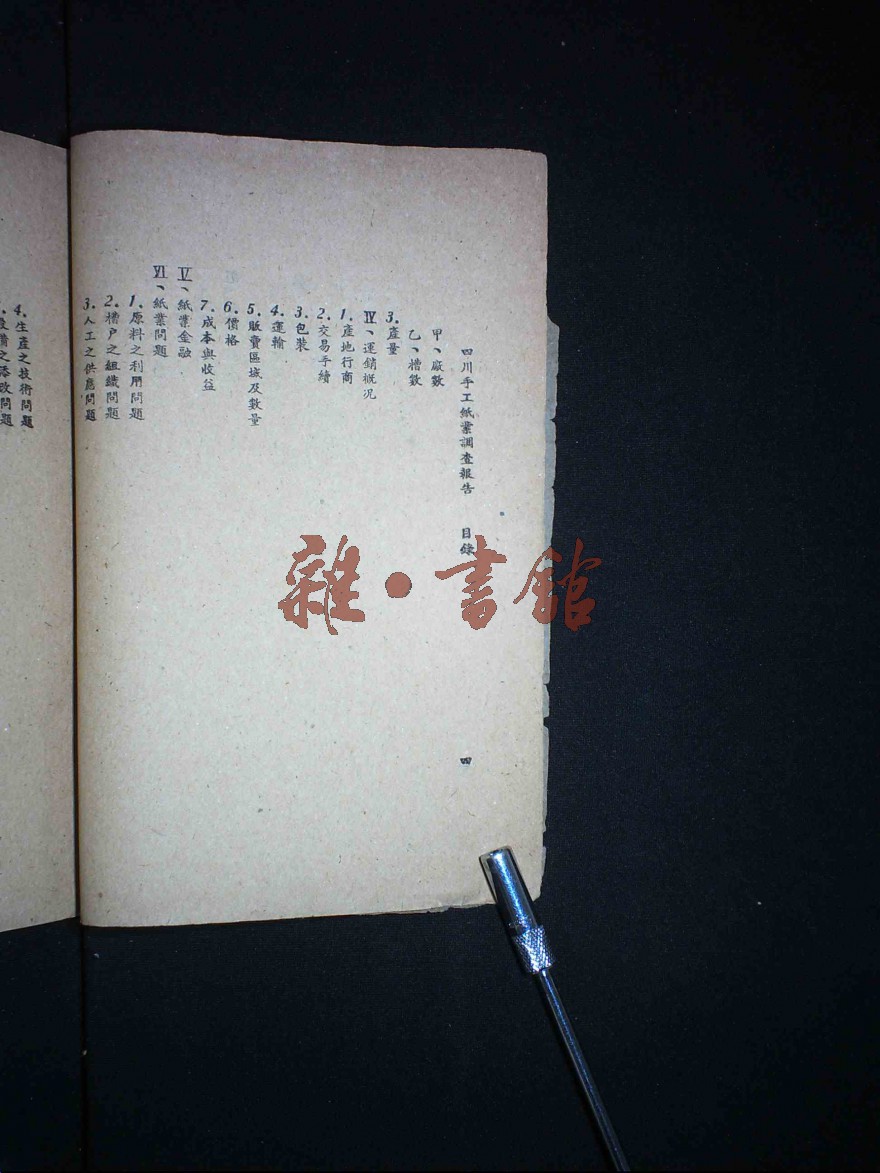 四川手工紙業調查報告 目錄 四
甲、廠數
乙、槽數
3.產量
Ⅳ、運銷概況
1.產地行商
2.交易手續
3.包裝
4.運輸
5.販賣區域及數量
6.價格
7.成本與收益
Ⅴ、紙業金融
Ⅵ、紙業問題
1.原料之利用問題
2.槽户之組織問題
3.人工之供應問題
4.生產之技術問題
設備之添改問題
雜·書館